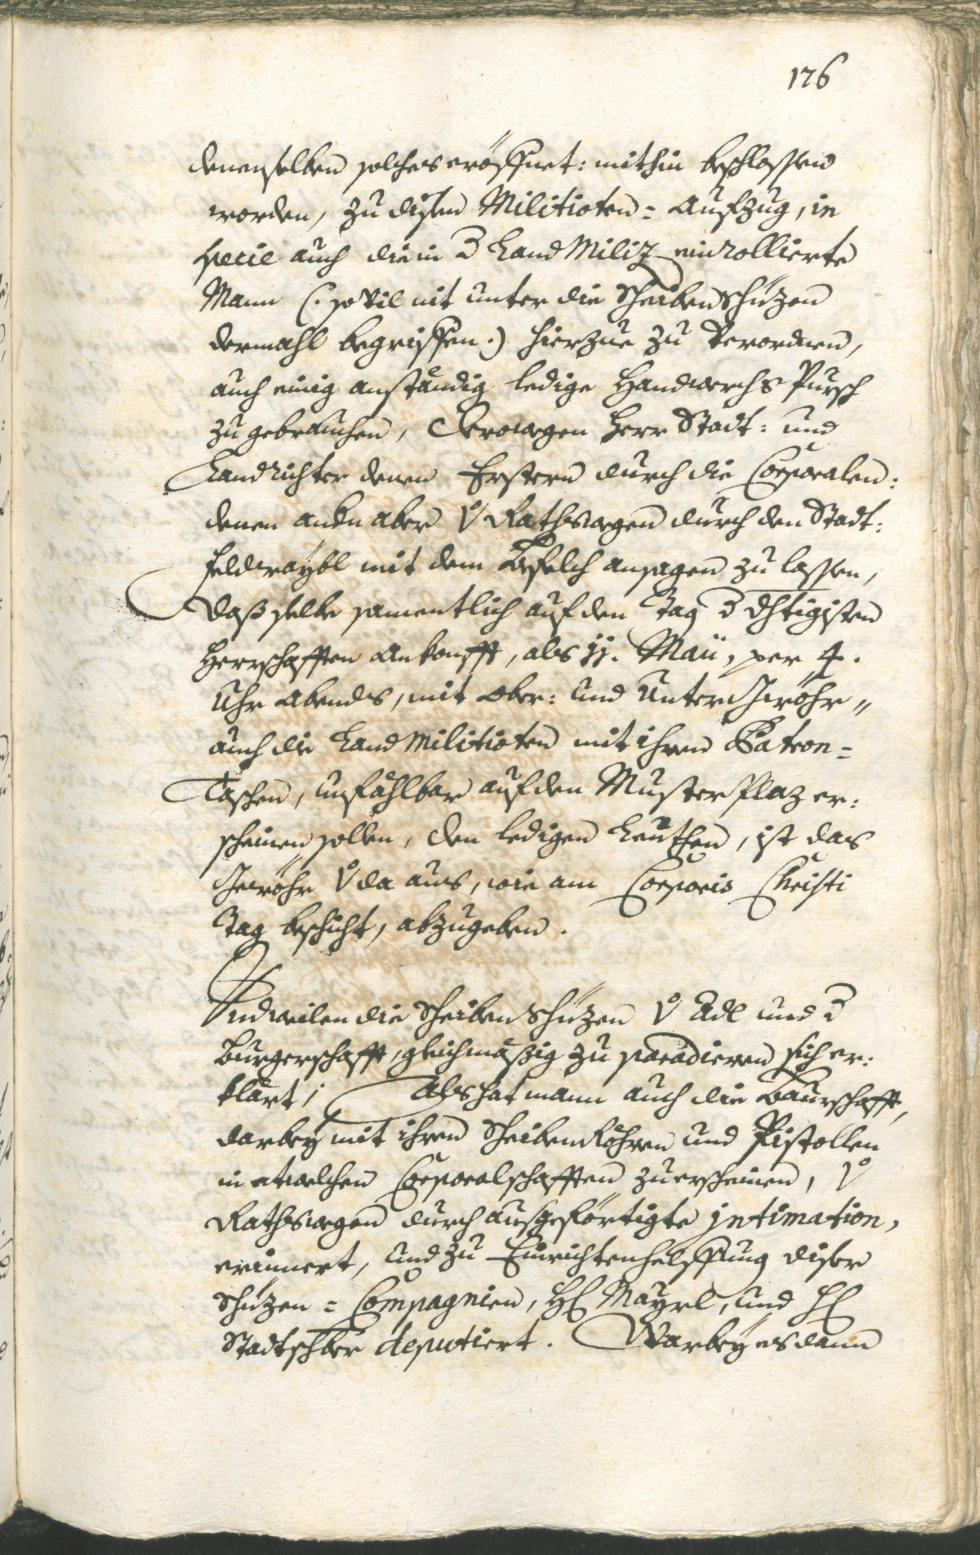 176
denenselben solches eröffnet: mithin beschlossen
worden, zu disem Militioten = Aufzug, in
specie auch die in d Land Miliz einrollierte
Mann (: sovil nit unter die Scheiben Schüzen
dermahl begriffen :) hierzue zu verordnen,
auch einig anständig ledige Handwerchs Pursch
zu gebrauchen, Derowegen Herr Stadt: und
Landrichter denen Erstern durch die Corporalen:
denen andn aber v Rathswegen durch den Stadt:
feldwaybl mit dem Befelch ansagen zu lassen,
daß selbe samentlich auf den Tag d gdhtigisten
Herrschafften Ankonfft, als 11. Maii, per 4.
Uhr Abends, mit Ober: und Unter Gwöhr,,
auch die Land Militioten mit ihren Patron =
Taschen, unfählbar auf den Muster Plaz er:
scheinen sollen, den ledigen Leuthen, ist das
Gewöhr v da aus, wie am Corporis Christi
Tag beschicht, abzugeben.
Undweilen die Scheiben Schüzen v Adl und d
Burgerschafft, gleichmäßig zu paradieren sich er:
klärt; Als hat mann auch die Baurschafft,
darbey mit ihren Scheiben Röhren und Pistollen
in etwelchen Corporalschafften zu erscheinen, v
Rathswegen durch ausgeförtigte intimation,
erinnert, und zu Einrichtenhelffung diser
Schüzen = Compagnien, H Mayrl, und H
Stadtschber deputiert. Warbey es dann